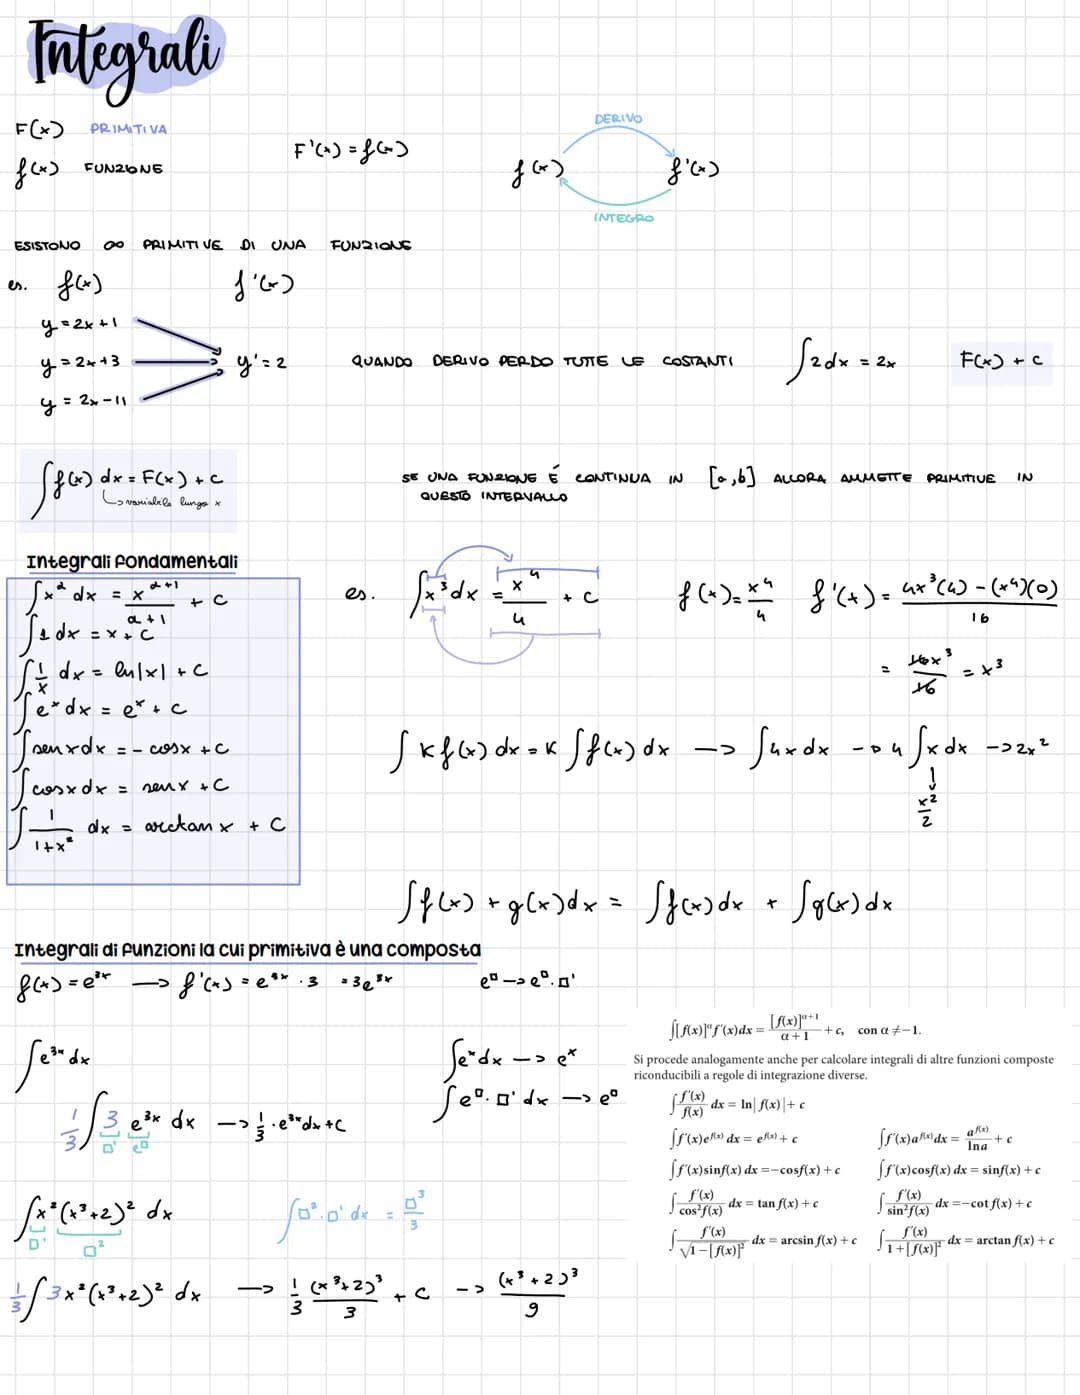 Integrali
F(x) PRIMITIVA
f(x) FUNZIONE
F'(x) = f(x)
DERIVO
f(x) f'(x)
INTEGRO
ESISTONO ∞ PRIMITIVE DI UNA FUNZIONE
es. f(x) f'(x)
y = 2x + 1
y = 2x + 3
y = 2x - 11
y' = 2
QUANDO DERIVO PERDO TUTTE LE COSTANTI
∫2dx = 2x
F(x) + C
∫f(x) dx = F(x) + C
↳ variabile lungo x
SE UNA FUNZIONE É CONTINUA IN [a,b] ALLORA AMMETTE PRIMITIVE IN
QUESTO INTERVALLO
Integrali fondamentali
∫x^α dx = x^(α+1)/(α+1) + C
∫1 dx = x + C
∫1/x dx = ln|x| + C
∫e^x dx = e^x + C
∫senxdx = - cosx + C
∫cosxdx = senx + C
∫1/(1+x²) dx = arctan x + C
es. ∫x³dx = x⁴/4 + C
f(x) = x⁴/4 f'(x) = (4x³(4) - (x⁴)(0))/16
= 16x³/16 = x³
∫Kf(x) dx = K∫f(x) dx —> ∫4xdx -> 4∫xdx -> 2x²
↓
x²/2
∫f(x) + g(x)dx = ∫f(x)dx + ∫g(x)dx
Integrali di funzioni la cui primitiva è una composta
f(x) = e^(3x) —> f'(x) = e^(3x) · 3 = 3e^(3x)
e^□ -> e^□ · □'
∫e^(3x) dx
1/3 ∫3 e^(3x) dx —> 1/3 · e^(3x)dx + C
□' e^□
∫e^x dx —> e^x
∫e^□ · □' dx —> e^□
∫x²(x³+2)² dx
□' □²
∫□² · □' dx = □³/3
1/3 ∫3x²(x³+2)² dx —> 1/3 (x³+2)³/3 + C -> (x³+2)³/9
∫[f(x)]^α f'(x)dx = [f(x)]^(α+1)/(α+1) + c, con α ≠ −1.
Si procede analogamente anche per calcolare integrali di altre funzioni composte
riconducibili a regole di integrazione diverse.
∫f'(x)/f(x) dx = ln|f(x)| + c
∫f'(x)e^(f(x)) dx = e^(f(x)) + c ∫f'(x)a^(f(x)) dx = a^(f(x))/lna + c
∫f'(x)sinf(x) dx = −cosf(x) + c ∫f'(x)cosf(x) dx = sinf(x) + c
∫f'(x)/cos²f(x) dx = tan f(x) + c ∫f'(x)/sin²f(x) dx = −cot f(x) + c
∫f'(x)/√(1−[f(x)]²) dx = arcsin f(x) + c ∫f'(x)/(1+[f(x)]²) dx = arctan f(x) + c